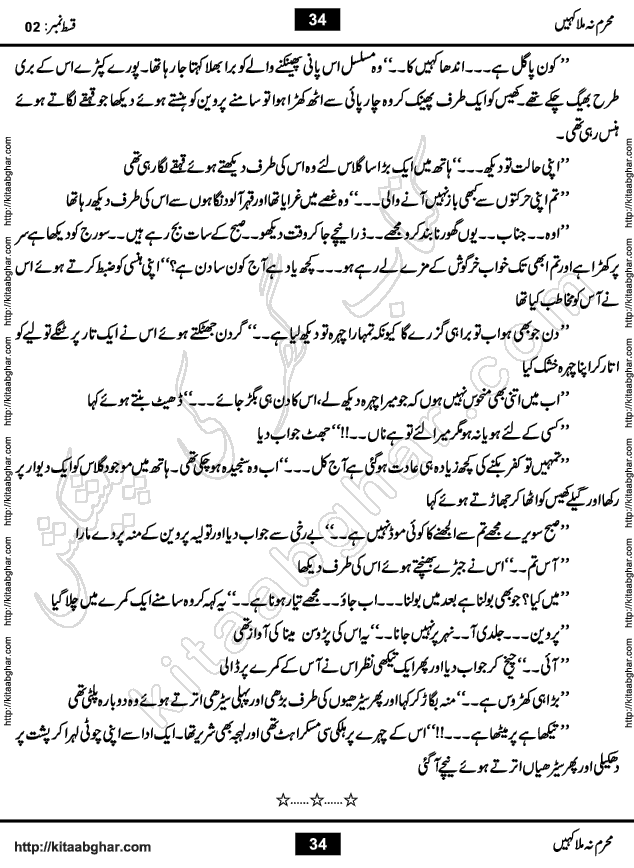 محرم نہ ملا کہیں 34 قسط نمبر: 02
’’کون پاگل ہے۔۔۔اندھا کہیں کا۔۔‘‘ وہ مسلسل اس پانی پھینکنے والے کو برا بھلا کہتا جا رہا تھا۔ پورے کپڑے اس کے بری
طرح بھیگ چکے تھے۔ کھیس کو ایک طرف پھینک کر وہ چارپائی سے اٹھ کھڑا ہوا تو سامنے پروین کو ہنستے ہوئے دیکھا جو قہقہے لگاتے ہوئے
ہنس رہی تھی۔
’’اپنی حالت تو دیکھ۔۔۔‘‘ ہاتھ میں ایک بڑا سا گلاس لئے وہ اس کی طرف دیکھتے ہوئے قہقہے لگا رہی تھی
’’تم اپنی حرکتوں سے کبھی باز نہیں آنے والی۔۔۔‘‘ وہ غصے میں غرایا تھا اور قہر آلود نگاہوں سے اس کی طرف دیکھ رہا تھا
’’اوہ۔۔جناب۔۔یوں گھورنا بند کرو مجھے۔۔ذرا نیچے جا کر وقت دیکھو۔۔صبح کے سات بج رہے ہیں۔۔سورج کو دیکھا ہے سر
پر کھڑا ہے اور تم ابھی تک خواب خرگوش کے مزے لے رہے ہو۔۔۔کچھ یاد ہے آج کون سا دن ہے؟‘‘ اپنی ہنسی کو ضبط کرتے ہوئے اس
نے آس کو مخاطب کیا تھا
’’دن جو بھی ہو اب تو برا ہی گزرے گا کیونکہ تمہارا چہرہ تو دیکھ لیا ہے۔۔‘‘ گردن جھٹکتے ہوئے اس نے ایک تار پر ٹنگے تولیے کو
اتار کر اپنا چہرہ خشک کیا
’’اب میں اتنی بھی منحوس نہیں ہوں کہ جو میرا چہرہ دیکھ لے، اس کا دن ہی بگڑ جائے۔۔۔‘‘ ڈھیٹ بنتے ہوئے کہا
’’کسی کے لئے ہو یا نہ ہو مگر میرا لئے تو ہے ناں۔۔!!‘‘ جھٹ جواب دیا
’’تمہیں تو کفر بکنے کی کچھ زیادہ ہی عادت ہو گئی ہے آج کل۔۔۔‘‘ اب وہ سنجیدہ ہو چکی تھی۔ ہاتھ میں موجود گلاس کو ایک دیوار پر
رکھا اور گیلے کھیس کو اٹھا کر جھاڑتے ہوئے کہا
’’صبح سویرے مجھے تم سے الجھنے کا کوئی موڈ نہیں ہے۔۔‘‘ بے رخی سے جواب دیا اور تولیہ پروین کے منہ پر دے مارا
’’آس تم۔۔‘‘ اس نے جبڑے بھینچتے ہوئے اس کی طرف دیکھا
’’میں کیا؟ جو بھی بولنا ہے بعد میں بولنا۔۔۔اب جاؤ۔۔مجھے تیار ہونا ہے۔۔‘‘ یہ کہہ کر وہ سامنے ایک کمرے میں چلا گیا
’’پروین۔۔۔جلدی آ۔۔نہر پر نہیں جانا۔۔‘‘ یہ اس کی پڑوسن مینا کی آواز تھی
’’آئی۔۔‘‘ چیخ کر جواب دیا اور پھر ایک تیکھی نظر اس نے آس کے کمرے پر ڈالی
’’بڑا ہی کھڑوس ہے۔۔‘‘ منہ بگاڑ کر کہا اور پھر سیڑھیوں کی طرف بڑھی اور پہلی سیڑھی اترتے ہوئے وہ دوبارہ پلٹی تھی
’’تیکھا ہے پر میٹھا ہے۔۔۔!!‘‘ اس کے چہرے پر ہلکی سی مسکراہٹ تھی اور لہجہ بھی شریر تھا۔ ایک ادا سے اپنی چوٹی لہرا کر پشت پر
دھکیلی اور پھر سیڑھیاں اترتے ہوئے نیچے آ گئی
☆......☆......☆
http://kitaabghar.com 34 محرم نہ ملا کہیں
http://kitaabghar.com http://kitaabghar.com http://kitaabghar.com http://kitaabghar.com http://kitaabghar.com http://kitaabghar.com
http://kitaabghar.com http://kitaabghar.com http://kitaabghar.com http://kitaabghar.com http://kitaabghar.com http://kitaabghar.com
کتاب گھر کی پیشکش
kitaabghar.com